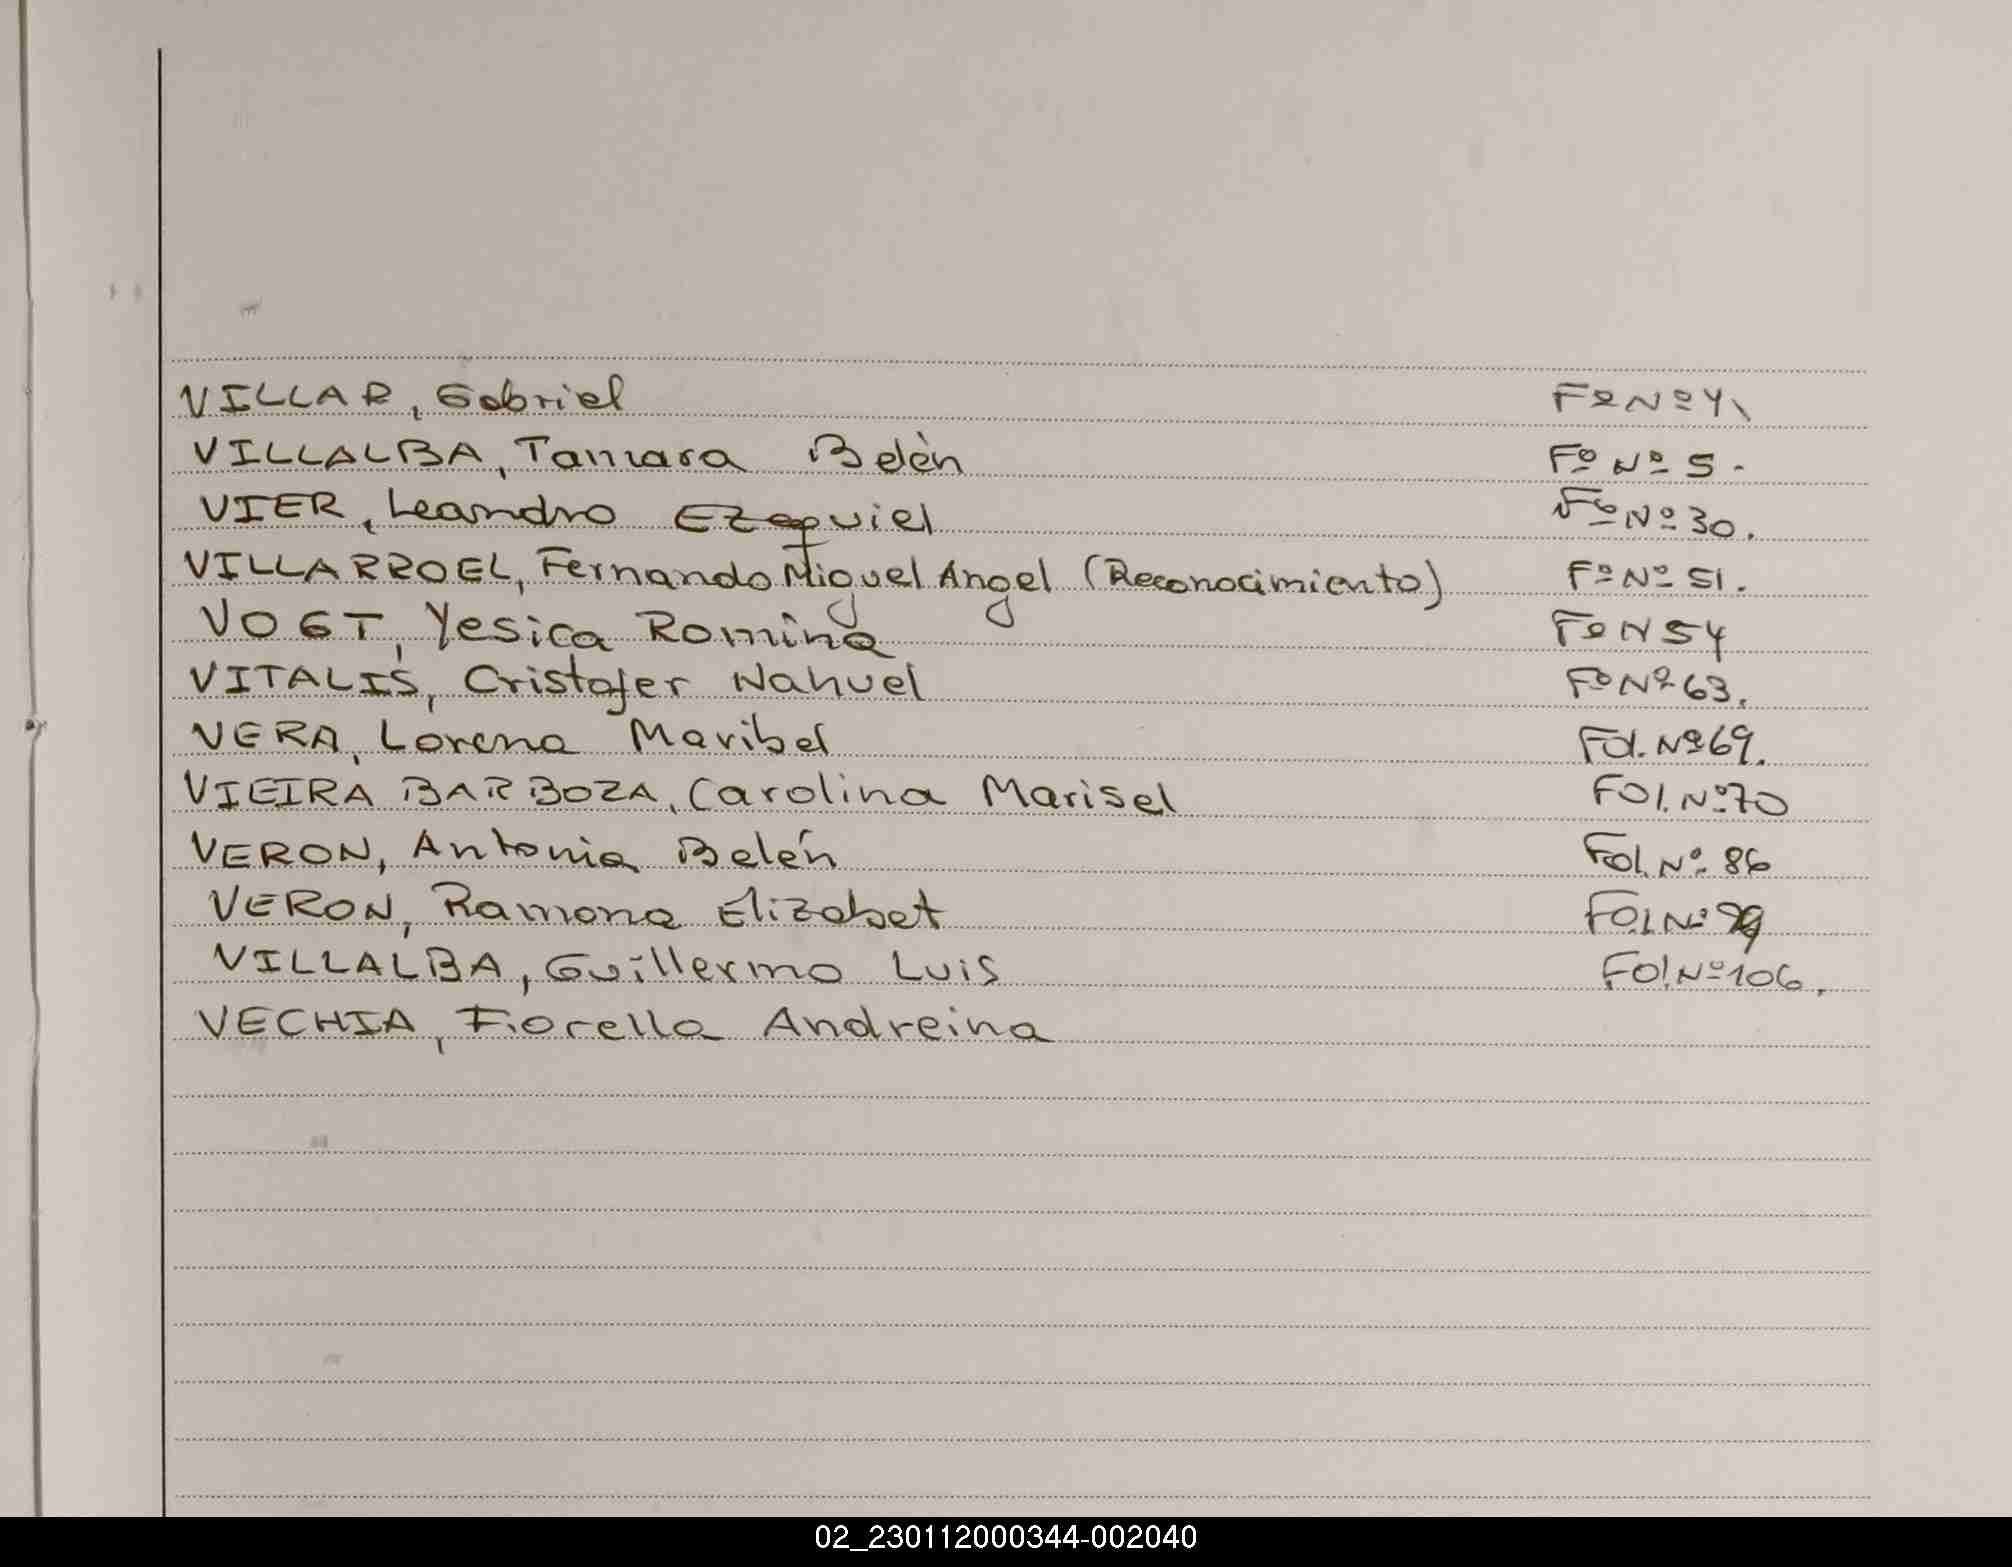 VILLAR, Gabriel Fº Nº 4
VILLALBA, Tamara Belén Fº Nº 5.
VIER, Leandro Ezequiel Fº Nº 30.
VILLARROEL, Fernando Miguel Angel (Reconocimiento) Fº Nº 51.
VOGT, Yesica Romina Fº N 54
VITALIS, Cristofer Nahuel Fº Nº 63.
VERA, Lorena Maribel Fol. Nº 69.
VIEIRA BARBOZA, Carolina Marisel Fol. Nº 70
VERON, Antonia Belén Fol. Nº 86
VERON, Ramona Elizabet Fol Nº
VILLALBA, Guillermo Luis Fol. Nº 106.
VECHIA, Fiorella Andreina
02_230112000344-002040